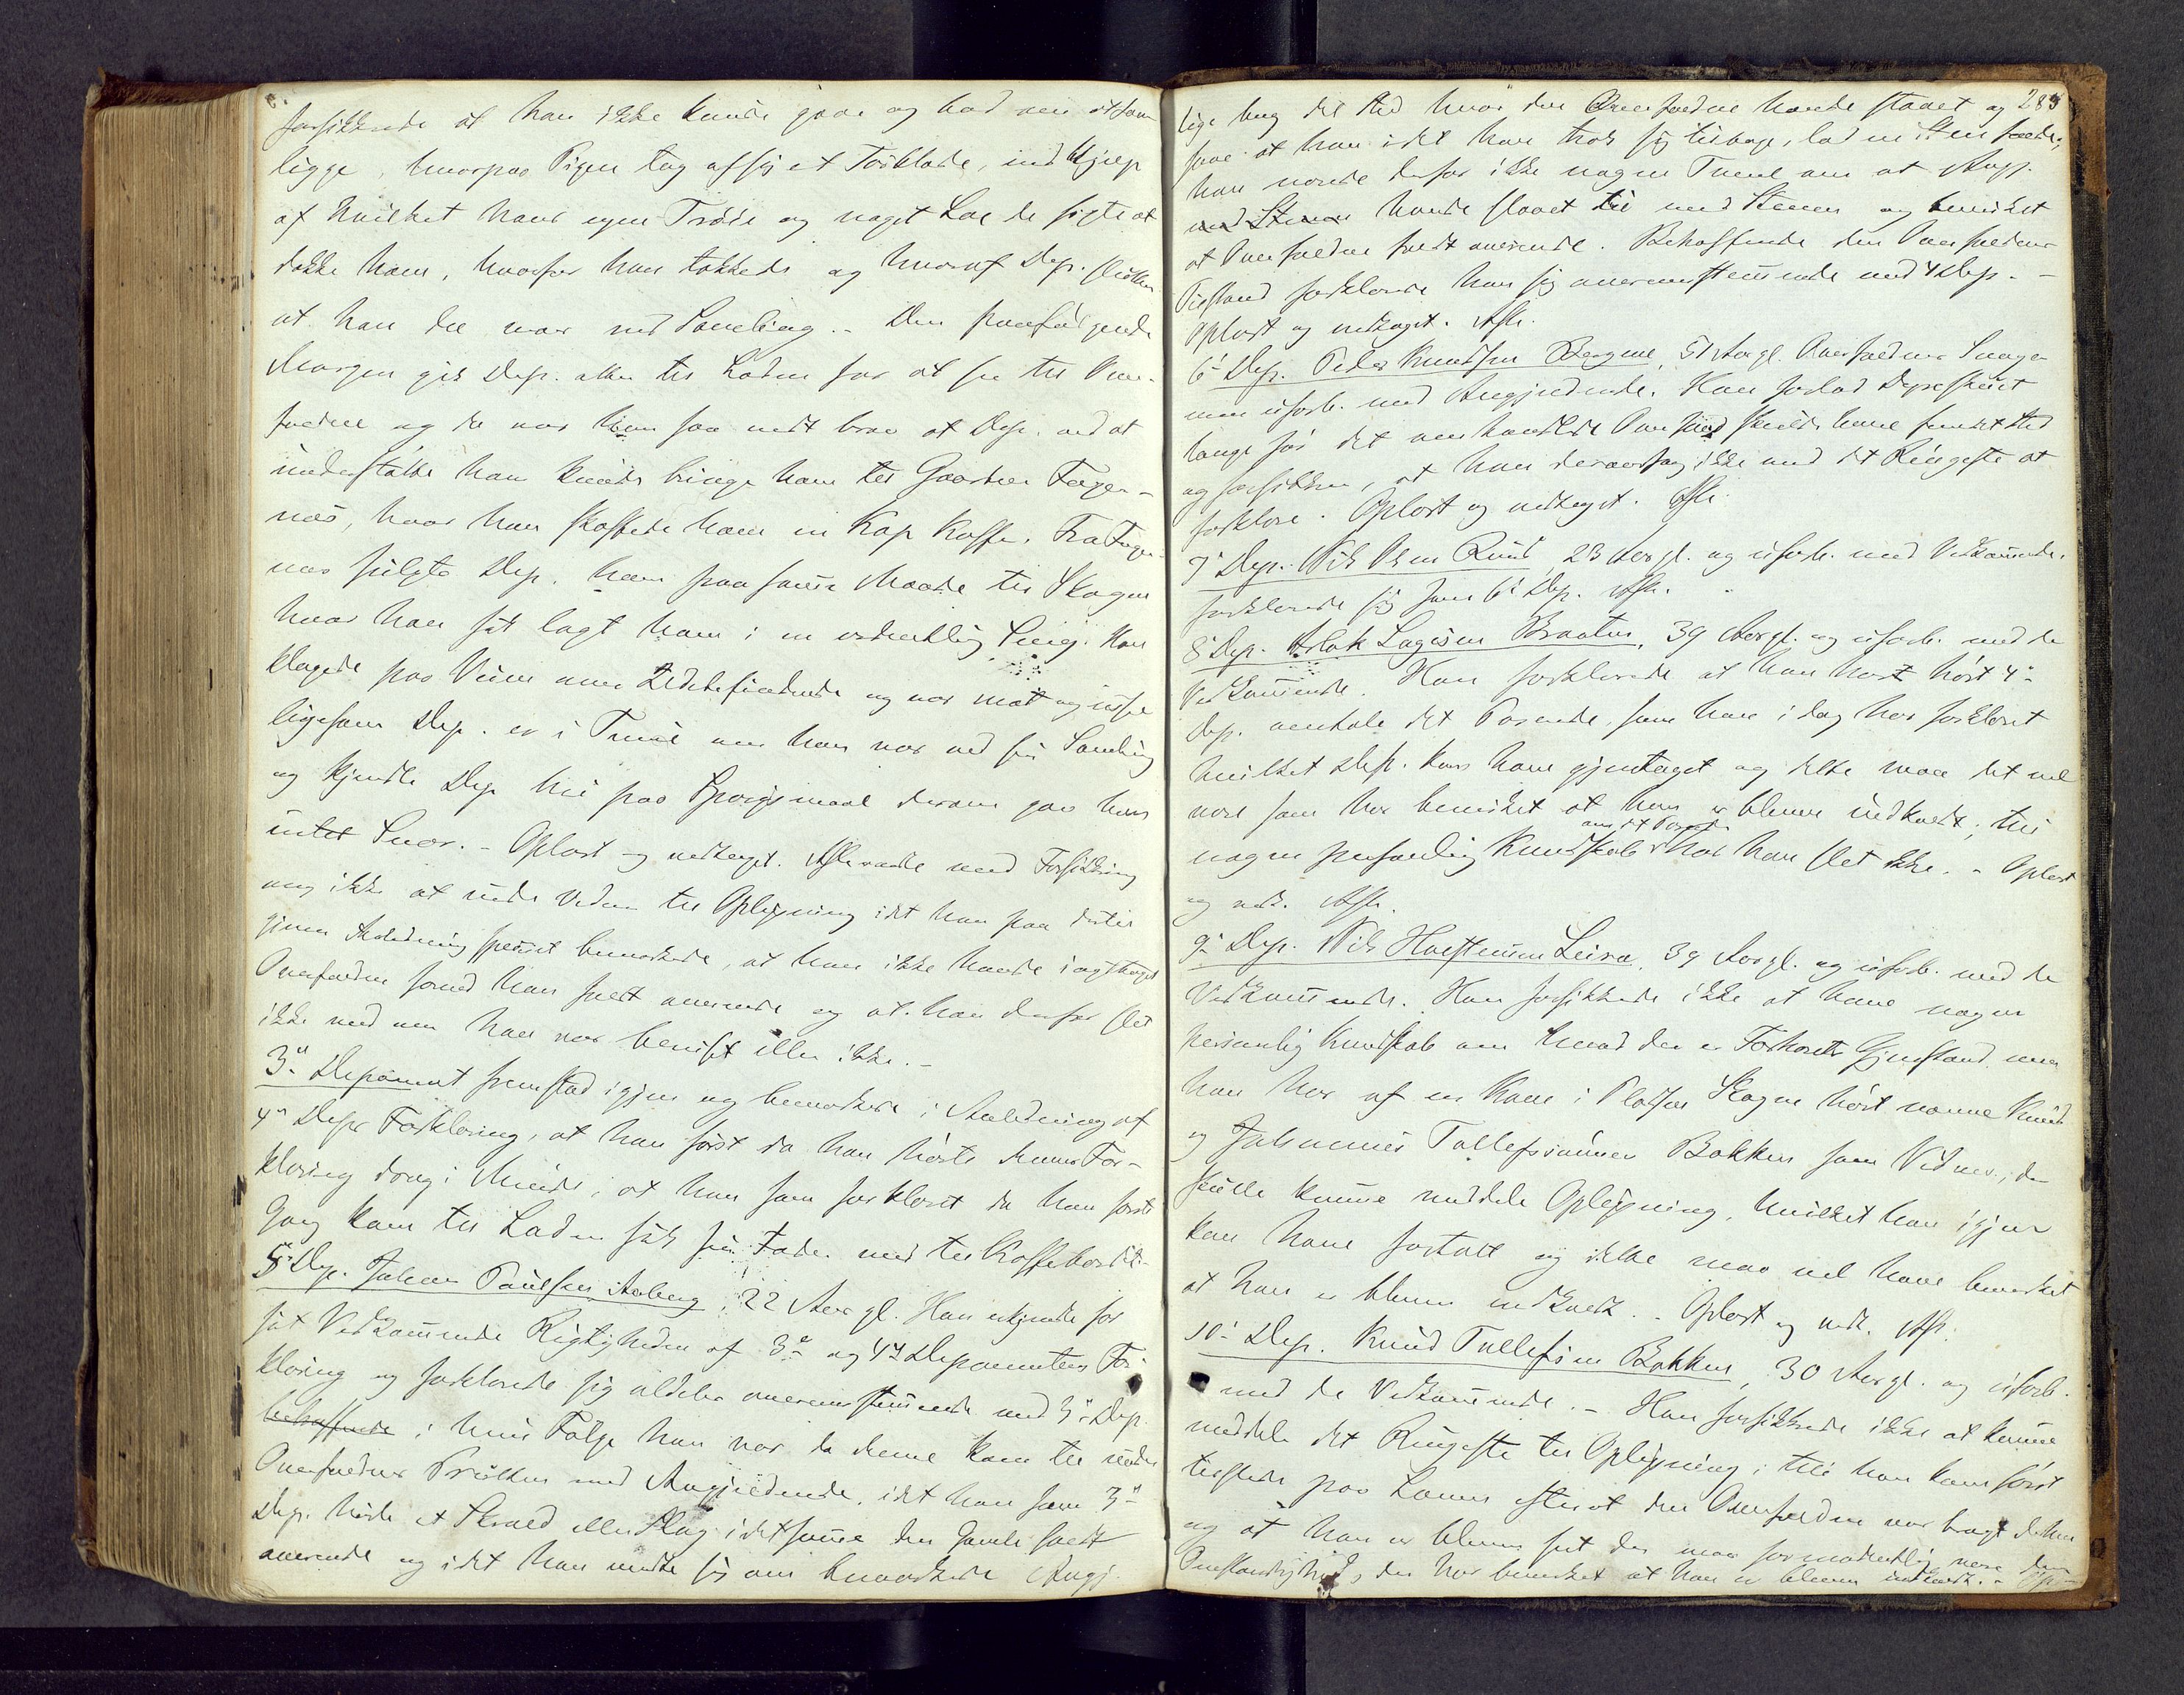 forsikkrede at han ikke kunde gaae og bad om at faae
ligge, hvorpaa Pigen tog af sig et Tørklæde, ved Hjælp
af hvilket hans egen Trøie og noget Løv de søgte at
dække ham, hvorfor han takkede og hvoraf Dep. slutter
at han da var ved Samling. - Den paafølgende
Morgen gik Dep. atter til Laden for at see til Over-
faldne og da var han saa vidt brav at Dep. ved at
understøtte ham kunde bringe ham til Gaarden Fager-
næs, hvor han skaffede ham en Kop Kaffe. Fra Fager-
næs fulgte Dep. ham paa samme Maade til Skogen
hvor han fik lagt ham i en ordentlig Seng. Han
klagede paa Veien over Ildebefindende og var mat og
ligesom Dep. er i Tvivl om han var ved sin Samling
og kjendte Dep. thi paa Spørgsmaal derom gav han
intet Svar. - Oplæst og vedtaget. Afhørte med Forsikkring
om ikke at vide videre til Oplysning idet han paa dertil
given Anledning specielt bemærkede, at han ikke havde iagttaget
Overfaldne forend han faldt overende og at han derfor slet
ikke ved om han var beruset eller ikke. -
3die Deponent fremstod igjen og bemærkede i Anledning af
4de Deps Forklaring, at han først da han hørte dennes For-
klaring drog i Minde, at han som forklaret da han første
Gang kom til Laden fik sin Fader med til Kaffebordet. -
5te Dep. Johan Paulsen Aaberg, 22 Aar gl. Han erkjendte for
sit Vedkommende Rigtigheden af 3die og 4de Deponenters For-
klaring og forklarede sig aldeles overensstemmende med 3die Dep.
betræffende i hvis Følge han var da denne kom til under
Overfaldnes Trætten med Angjeldende, idet han som 3die
Dep. hørte et Skrald eller Slag i detsamme den Gamle faldt
overende og idet han vendte sig om bemærkede Angj.
283
lige bag det Sted hvor den Overfaldne havde staaet og
saae at han idet han trak sig tilbage, lod en Sten falde;
han nærede derfor ikke nogen Tvivl om at Angj.
med Stenen havde slaaet til med Stenen og bevirket
at Overfaldne faldt overende. Betræffende den Overfaldnes
Tilstand forklarede han sig overensstemmende med 4 Dep. -
Oplæst og vedtaget. Afh.
6te Dep. Peder Knudsen Bergene, 51 Aar gl. Overfaldnes Svoger
men ubesl. med Angjeldende. Han forlod Dyrskuet
længe før det omhandlede Overfald skulde have fundet Sted
og forsikkrer, at han deraarsag ikke ved det Ringeste at
forklare. Oplæst og vedtaget. Afh.
7de Dep. Nils Olsen Rud, 23 Aar gl. og ubesl. med Vedkommende.
forklarede sig som 6te Dep. Afh.
8de Dep. Aslak Lagesen Braaten, 39 Aar gl. og ubesl. med de
Vedkommende. Han forklarede at han har hørt 4de
Dep. omtale det Passerede, som han i dag har forklaret
hvilket Dep. kan have gjentaget og dette maa det vel
være som har bevirket at han er bleven indkaldt; thi
nogen personlig Kundskab om det Passerede har han slet ikke. - Oplæst
og vedt. Afh.
9de Dep. Nils Halstensen Leira, 39 Aar gl. og ubesl. med de
Vedkommende. Han forsikkrede ikke at have nogen
personlig Kundskab om hvad der er Forhørets Gjenstand men
han har af en Kone i Pladsen Skogen hørt nævne Knud
og Johannes Tollefssønner Bakken som Vidner, der
skulle kunne meddele Oplysning, hvilket han igjen
kan have fortalt og dette maa vel have bevirket
at han er bleven indkaldt. - Oplæst og vedt. Afh.
10de Dep. Knud Tollefsen Bakken, 30 Aar gl. og ubesl.
med de Vedkommende. - Han forsikkrede ikke at kunne
meddele det Ringeste til Oplysning; thi han kom først
tilstede paa Laaven efterat den Overfaldne var bragt derhen
og at han er bleven seet der maa formodentlig være den
Omstændighed, der har bevirket at han er bleven indkaldt. - Opl.